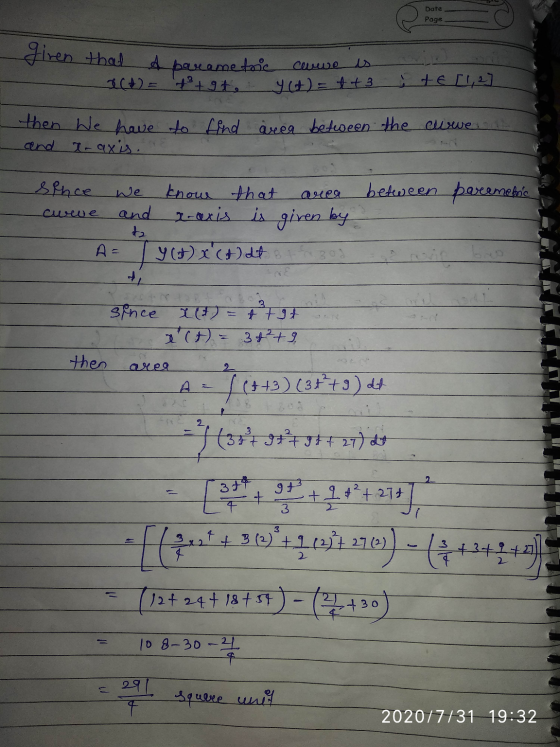 Date
Page
Given that A parametric curve is
x(t) = t³ + 9t, y(t) = t + 3 ; t ∈ [1,2]
then We have to find area between the curve
and x-axis.
Since We know that area between parametric
curve and x-axis is given by
A = ∫_{t₁}^{t₂} y(t) x'(t) dt
Since x(t) = t³ + 9t
x'(t) = 3t² + 9
then area
A = ∫_1^2 (t+3) (3t² + 9) dt
= ∫_1^2 (3t³ + 9t² + 9t + 27) dt
= [3t⁴/4 + 9t³/3 + 9/2 t² + 27t]_1^2
= [(3/4 × 2⁴ + 3(2)³ + 9/2 (2)² + 27(2)) − (3/4 + 3 + 9/2 + 27)]
= (12 + 24 + 18 + 54) − (21/4 + 30)
= 108 − 30 − 21/4
= 291/4 square unit
2020/7/31 19:32